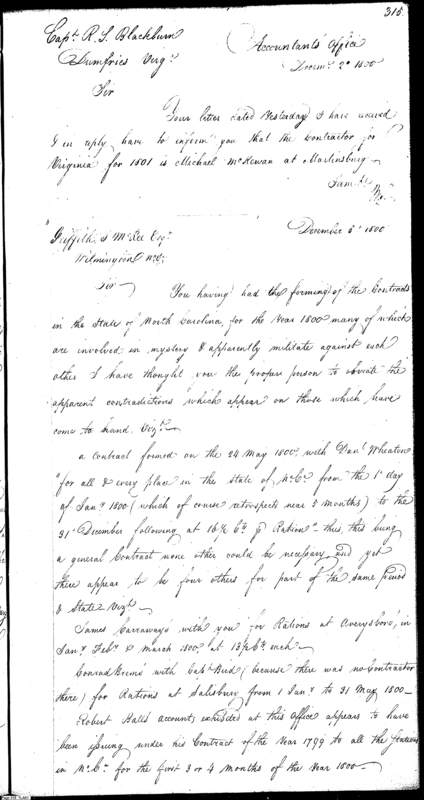 315.
Capt. R. S. Blackburn
Dumfries Virga.
Accountants Office
Decemr. 2d 1800
Sir
Your letter dated Yesterday I have received
& in reply have to inform you that the Contractor for
Virginia for 1801 is Michael McKewan at Martinsburg
I am &c
December 5t 1800
Griffith J McRee Esqr.
Wilmington N.C.
Sir
You having had the forming of the Contracts
in the State of North Carolina, for the Year 1800 many of which
are involved in mystery & apparently militate against each
other I have thought you the proper person to obviate the
apparent contradictions which appear on those which have
come to hand. Vizt.
a Contract formed on the 24 May 1800, with Danl. Wheaton
"for all & every place in the state of No. Ca. from the 1st day
of Jany 1800 (which of course retrospects near 5 months) to the
31st December following at Cts. p Ration" this, this being
a general Contract none other could be necessary and yet
there appear to be four others for part of the same period
& State Vizt.
James Carraway's with you for Rations at Averysboro', in
Jany Feby & March 1800, at 13½ Cts. each
Conrad with Capt. Bird (because there was no Contractor
there) for Rations at Salisbury from 1 Jany to 31 May 1800
Robert Hall's account, exhibited at this Office appears to have
been issuing under his Contract of the Year 1799 to all the
in No. Ca. for the first 3 or 4 months of the Year 1800